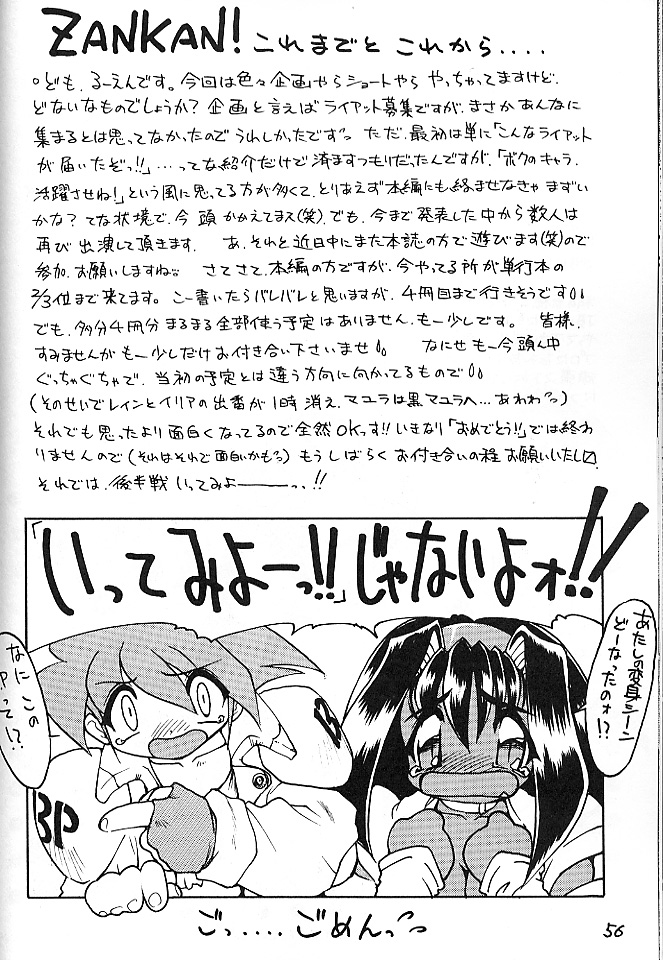 ZANKAN! これまでと これから....
ども。るーえんです。今回は色々企画やらショートやら やっちゃってますけど、
どないなものでしょうか? 企画と言えばライアット募集ですが、まさかあんなに
集まるとは思ってなかったのでうれしかったですっっ ただ、最初は単に「こんなライアット
が届いたぞっ!!」…ってな紹介だけで済ますつもりだったんですが、「ボクのキャラ、
活躍させね!」という風に思ってる方が多くて、とりあえず本編にも絡ませなきゃ まずい
かな? てな状況で、今 頭 かかえてまス(笑)、でも、今まで発表した中から数人は
再び出演して頂きます。 あ、それと近日中にまた本誌の方で遊びます(笑)ので
参加、お願いしますねっっ さてさて、本編の方ですが、今やってる所が単行本の
2/3位まで来てます。こー書いたらバレバレと思いますが、4冊目まで行きそうです
でも、多分4冊分まるまる全部使う予定はありません、もー少しです。 皆様、
すみませんが もー少しだけお付き合い下さいませ なにせもー今頭ん中
ぐっちゃぐちゃで、当初の予定とは違う方向に向かってるもので
(そのせいでレインとイリアの出番が1時消え、マユラは黒マユラへ…あわわっっ)
それでも思ったより面白くなってるので全然OKっす!! いきなり「おめでとう!!」では終わ
りませんので(それはそれで面白いかもっっ) もうしばらく お付き合いの程 お願いいたし〼
それでは、後半戦 いってみよーーっ、!!
「いってみよーっ!!」じゃないよォ!!
あたしの変身シーン
どーなったのォ!?
なに この
Pって!?
B
BP
ごっ.....ごめんっっ
56